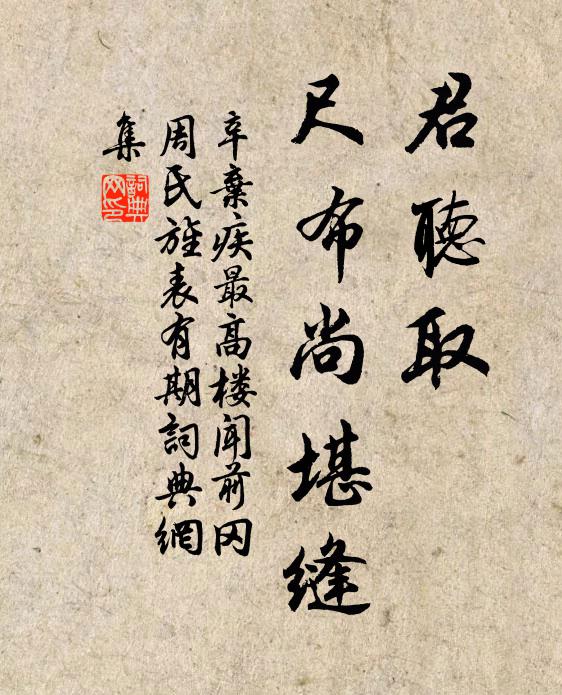 君聽取
尺布尚堪縫
辛棄疾最高楼闻前冈
周氏旌表有期詞典網
集
詞典网印